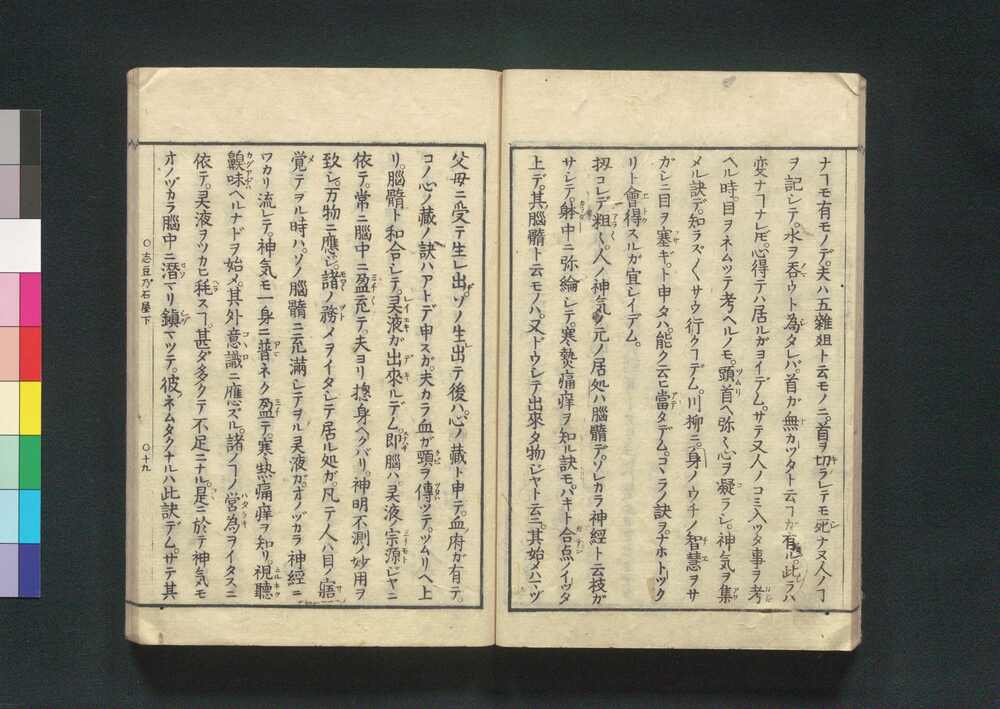 ナヿモ有モノデ。夫ハ五雜俎ト云モノニ。首ヲ切ラレテモ死ナヌ人ノヿ
ヲ記シテ。水ヲ呑ウト為タレバ。首ガ無カツタト云ヿガ有ル。此ラハ
変ナヿナレドモ。心得テハ居ルガヨイデム。サテ又人ノコミ入ツタ事ヲ考
ヘル時。目ヲネムツテ考ヘルノモ。頭首ヘ弥〻心ヲ凝ラシ。神気ヲ集
メル訣デ。知ラズ〳〵サウ行クヿデム。川柳ニ身ノウチノ智慧ヲサ
ガシニ目ヲ塞ギ。ト申タハ。能ク云ヒ當タデム。コヽラノ訣ヲ。チホトツク
リト會得スルガ宜シイデム。
扨コレデ粗〻。人ノ神気ノ元ノ居処ハ腦髓デ。ソレカラ神經ト云枝ガ
サシテ。躰中ニ弥綸シテ。寒熱痛痒ヲ知ル訣モ。バキト合点ノイツタ
上デ。其腦髓ト云モノハ。又ドウシテ出來タ物ジヤト云ニ。其始メハ一ヅ
父母ニ受テ生レ出。ソノ生出テ後ハ。心ノ藏ト申テ。血府ガ有テ。
コノ心ノ藏ノ訣ハアトデ申スガ。夫カラ血ガ頸ヲ傳ツテ。ツムリヘ上
リ。腦髓ト和合シテ。灵液ガ出來ルデム。即腦ハ。灵液ノ宗源ジヤニ
依テ。常ニ腦中ニ盈充テ。夫ヨリ摠身ヘクバリ。神明不測ノ妙用ヲ
致シ。万物ニ應ジ。諸ノ務メヲイタシテ居ル処ガ。凡テ人ハ目ノ寤
覚テヲル時ハ。ソノ腦髓ニ充滿シテヲル灵液ガ。オノヅカラ神經ニ
ワカリ流レテ。神気モ一身ニ普ネク盈テ。寒熱痛痒ヲ知リ。視聽
齅味ヘルナドヲ始メ。其外意識ニ應ズル。諸ノヿノ営為ヲイタスニ
依テ。灵液ヲツカヒ秏スヿ。甚ダ多クテ不足ニナル。是ニ於テ神気モ
オノヅカラ腦中ニ潛マリ鎭マツテ。彼ネムタクナルハ此訣デム。サテ其
〇志豆乃石屋下
〇十九